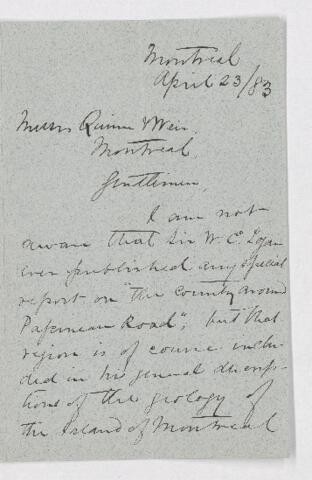 Montreal
April 23/83
Messrs Quinn & Weir
Montreal,
Gentlemen,
I am not
aware that Sir W. E. Logan
ever published any special
report on "the country around
Papineau Road", but that
region is of course inclu-
ded in his general descrip-
tions of the geology of
the Island of Montreal